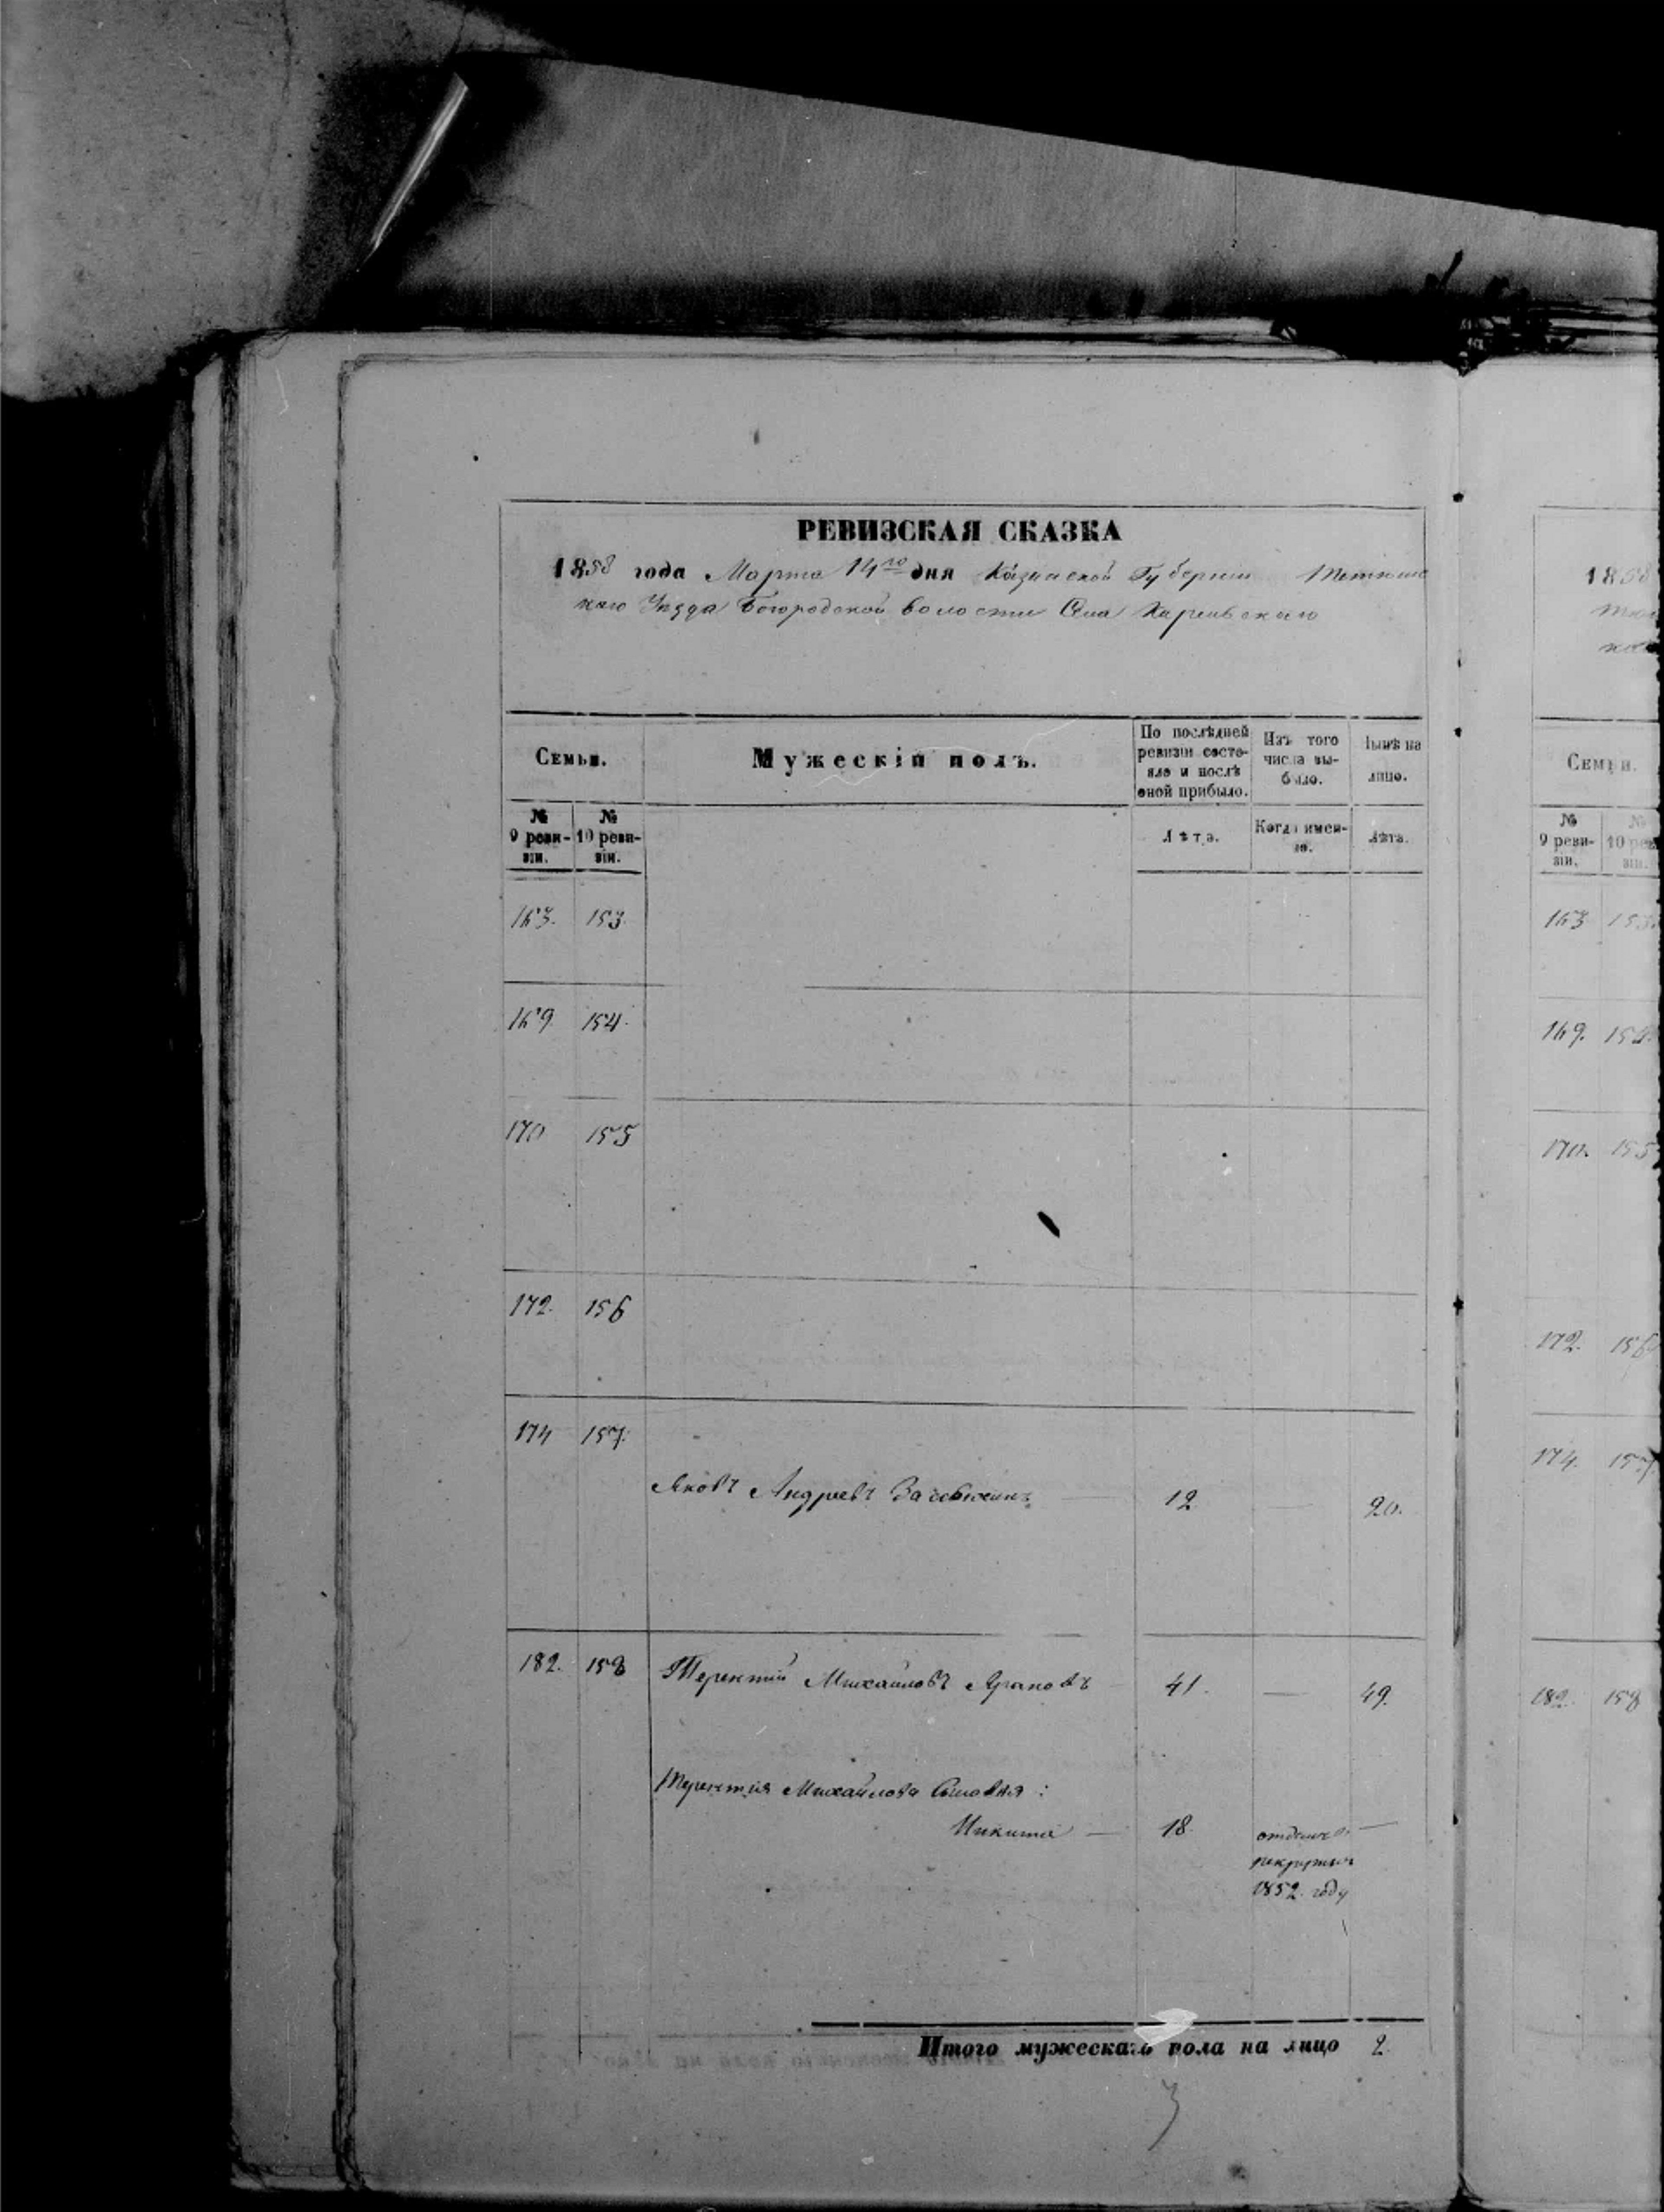 РЕВИЗСКАЯ СКАЗКА
1858 года Марта 14го дня Казанской Губернии Тетюш
скаго Уезда Богородской волости Села
Семьи. Мужескій полъ. По послѣдней ревизіи состояло и послѣ оной прибыло. Изъ того числа выбыло. Нынѣ на лицо.
№ 9 ревизіи. № 10 ревизіи. Лѣта. Когда именно. Лѣта.
163. 153.
169. 154.
170 155
172. 156
174 157.
Яковъ Андреевъ 12 — 20.
182. 158 Терентий Михайловъ Араповъ 41. — 49.
Терентия Михайлова Сыновья:
Никита — 18 отданъ в —
рекруты
1852. году
Итого мужескаго пола на лицо 2
1858
Семьи.
№ 9 ревизіи. № 10
163 153.
169. 154.
170. 155
172. 156
174. 157
182. 158